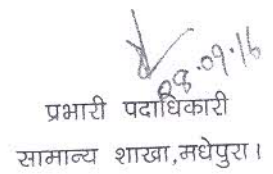 28.09.16
प्रभारी पदाधिकारी
सामान्य शाखा,मधेपुरा।